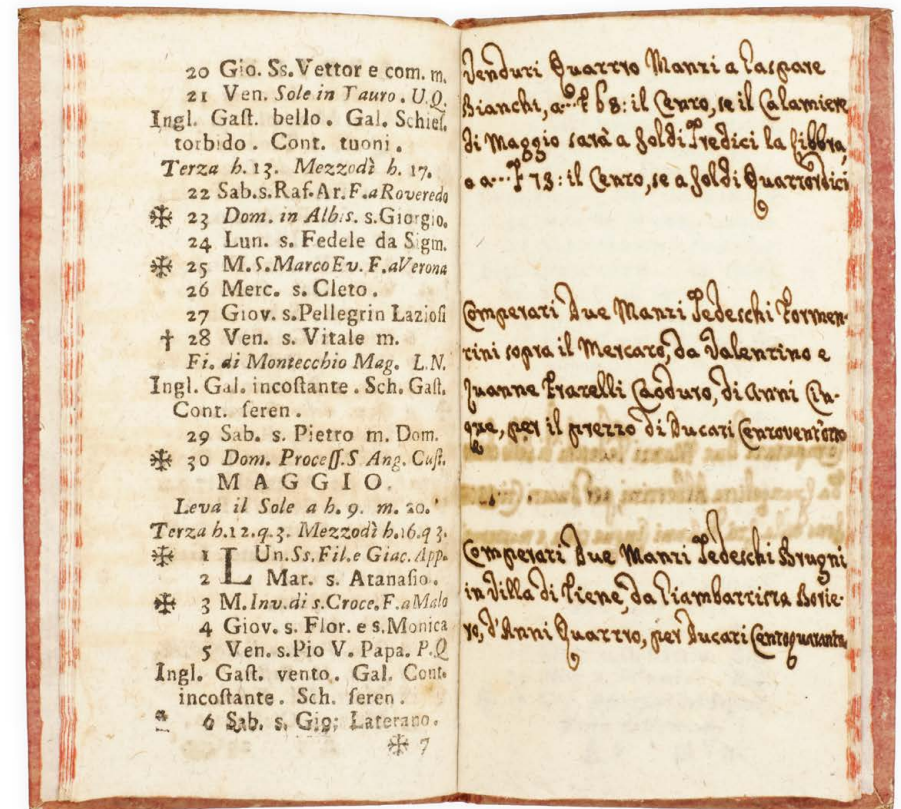 20 Gio. Ss. Vettor e com. m.
21 Ven. Sole in Tauro. U.Q.
Ingl. Gaſt. bello. Gal. Schieſ.
torbido. Cont. tuoni.
Terza h. 13. Mezzodì h. 17.
22 Sab. s. Raf. Ar. F. a Roveredo
✠ 23 Dom. in Albis. s. Giorgio.
24 Lun. s. Fedele da Sigm.
✠ 25 M. S. Marco Ev. F. a Verona
26 Merc. s. Cleto.
27 Giov. s. Pellegrin Lazioſi
† 28 Ven. s. Vitale m.
Fi. di Montecchio Mag. L.N.
Ingl. Gal. incoſtante. Sch. Gaſt.
Cont. ſeren.
29 Sab. s. Pietro m. Dom.
✠ 30 Dom. Proceſſ. S Ang. Cuſt.
MAGGIO.
Leva il Sole a h. 9. m. 20.
Terza h. 12. q. 3. Mezzodì h. 16. q 3.
✠ 1 LUn. Ss. Fil. e Giac. App.
2 Mar. s. Atanaſio.
✠ 3 M. Inv. di s. Croce. F. a Malo
4 Giov. s. Flor. e s. Monica
5 Ven. s. Pio V. Papa. P.Q
Ingl. Gaſt. vento. Gal. Cont.
incoſtante. Sch. ſeren.
6 Sab. s. Gio: Laterano.
✠ 7
Venduti Quattro Manzi a Gaspare
Bianchi, a 68: il Cento, se il Calamiere
di Maggio sarà a soldi Tredici la libbra,
o a 73: il Cento, se a soldi Quattordici
Comperati Due Manzi Tedeschi Formen-
tini sopra il Mercato, da Valentino e
Zuanne Fratelli Caoduro, di Anni Cin-
que, per il prezzo di Ducati Centoventotto
Comperati Due Manzi Tedeschi Brugni
in Villa di Tiene, da Giambattista Borie-
ro, d'Anni Quattro, per Ducati Centoquaranta